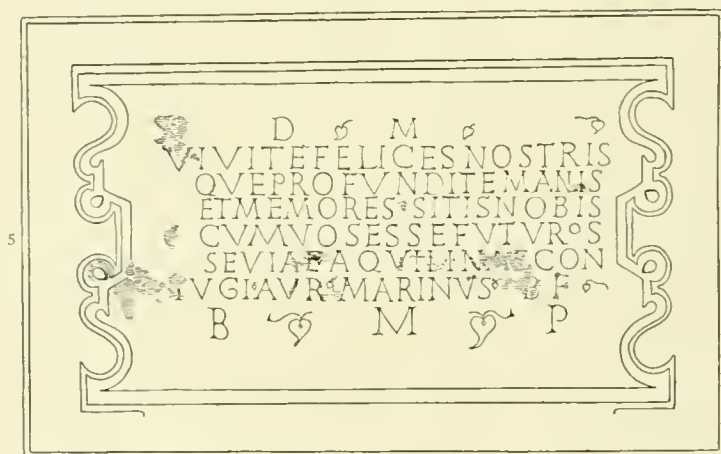 D M
VIVITE FELICES NOSTRIS
QVE PROFVNDITE MANIS
ET MEMORES SITIS NOBIS
5 CVM VOS ESSE FVTVROS
SEVIAE AQVILINAE CON
IVGI AVR MARINVS B F
B M P